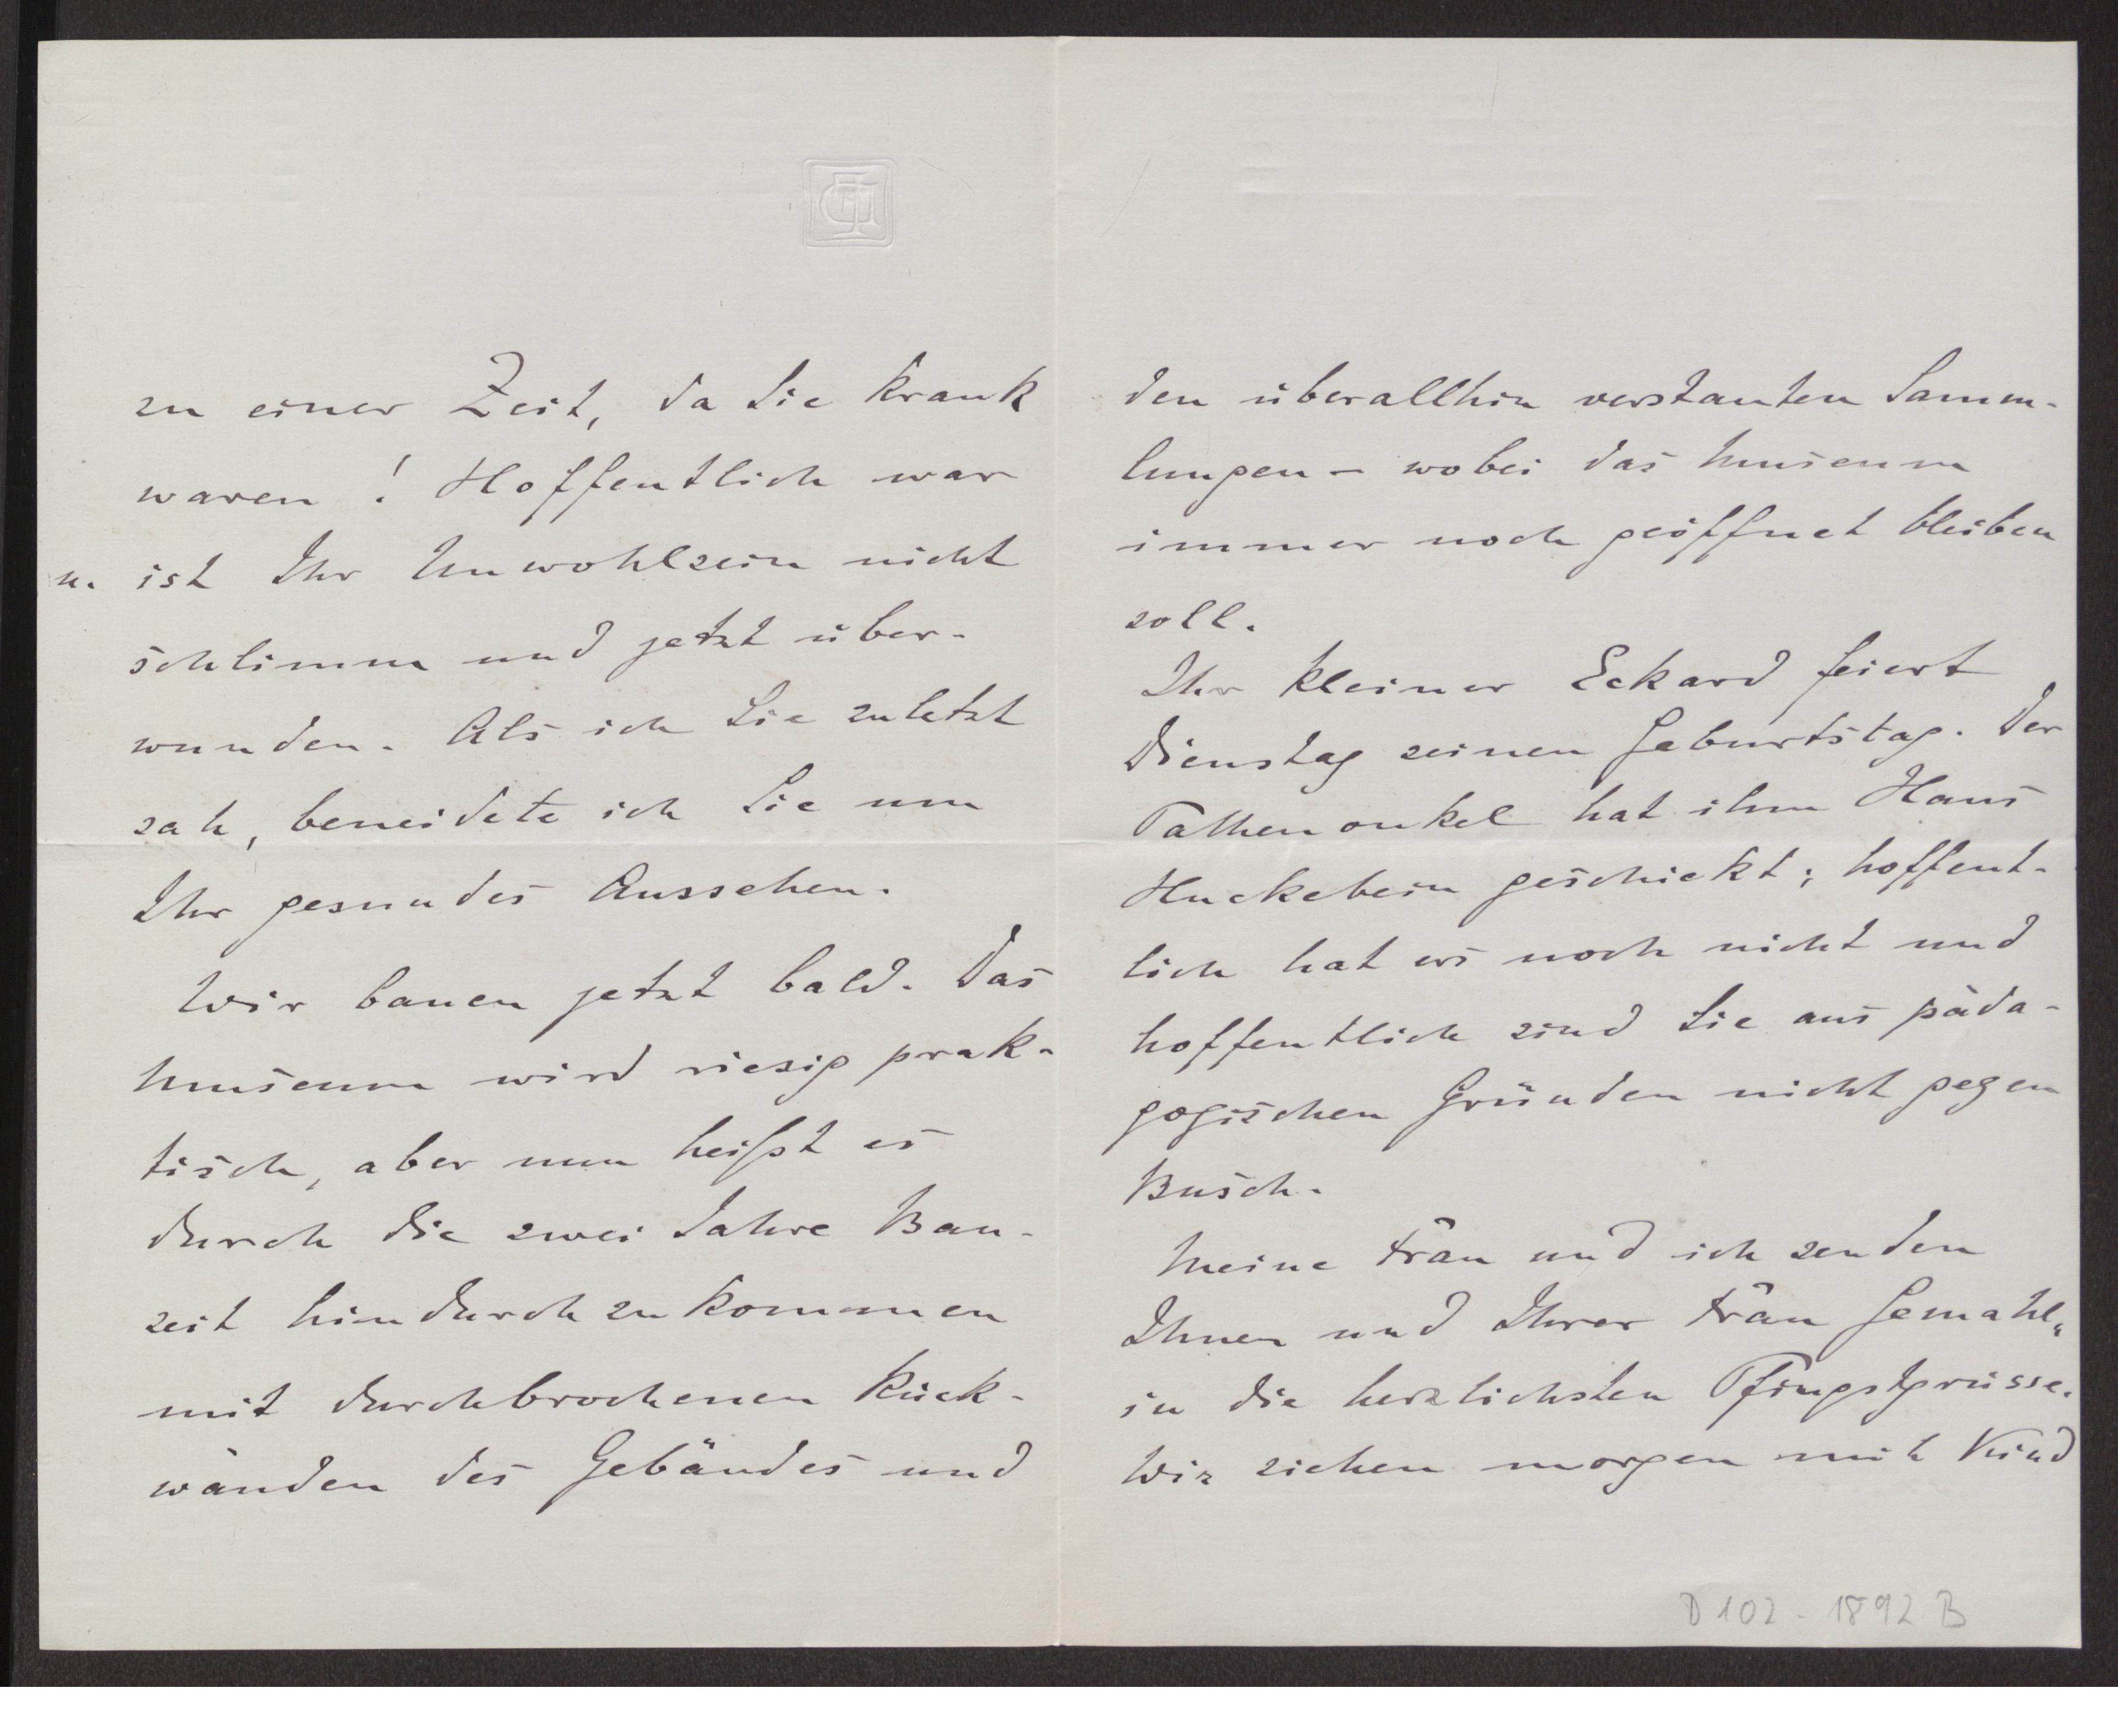 zu einer Zeit, da Sie krank
waren! Hoffentlich war
u. ist Ihr Unwohlsein nicht
schlimm und jetzt über-
wunden. Als ich Sie zuletzt
sah, beneidete ich Sie um
Ihr gesundes Aussehen.
Wir bauen jetzt bald. Das
Museum wird riesig prak-
tisch, aber nun heißt es
durch die zwei Jahre Bau-
zeit hindurchzukommen
mit durchbrochenen Rück-
wänden des Gebäudes und
den überallhin verstauten Samm-
lungen – wobei das Museum
immer noch geöffnet bleiben
soll.
Ihr kleiner Eckard feiert
Dienstag seinen Geburtstag. Der
Pathenonkel hat ihm Hans
Huckebein geschickt; hoffent-
lich hat ers noch nicht und
hoffentlich sind Sie aus päda-
gogischen Gründen nicht gegen
Busch.
Meine Frau und ich senden
Ihnen und Ihrer Frau Gemahl-
in die herzlichsten Pfingstgrüsse.
Wir ziehen morgen mit Kind
D 102 - 1892 B